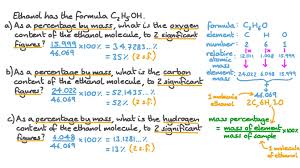 Ethanol has the formula C₂H₅OH.
a) As a percentage by mass, what is the oxygen
content of the ethanol molecule, to 2 significant
figures? 15.999/46.069 ×100% = 34.7283...%
= 35% (2 s.f.)
b) As a percentage by mass, what is the carbon
content of the ethanol molecule, to 2 significant
figures? 24.022/46.069 ×100% = 52.1435...%
= 52% (2 s.f.)
c) As a percentage by mass, what is the hydrogen
content of the ethanol molecule, to 2 significant
figures? 6.048/46.069 ×100% = 13.1281...%
= 13% (2 s.f.)
formula: C₂H₆O
element: C H O
number: 2 6 1
relative atomic mass
24.022 6.048 15.999
46.069
1 molecule ethanol
2C, 6H, 1O
mass percentage
= mass of element / mass of sample ×100%
1 molecule of ethanol